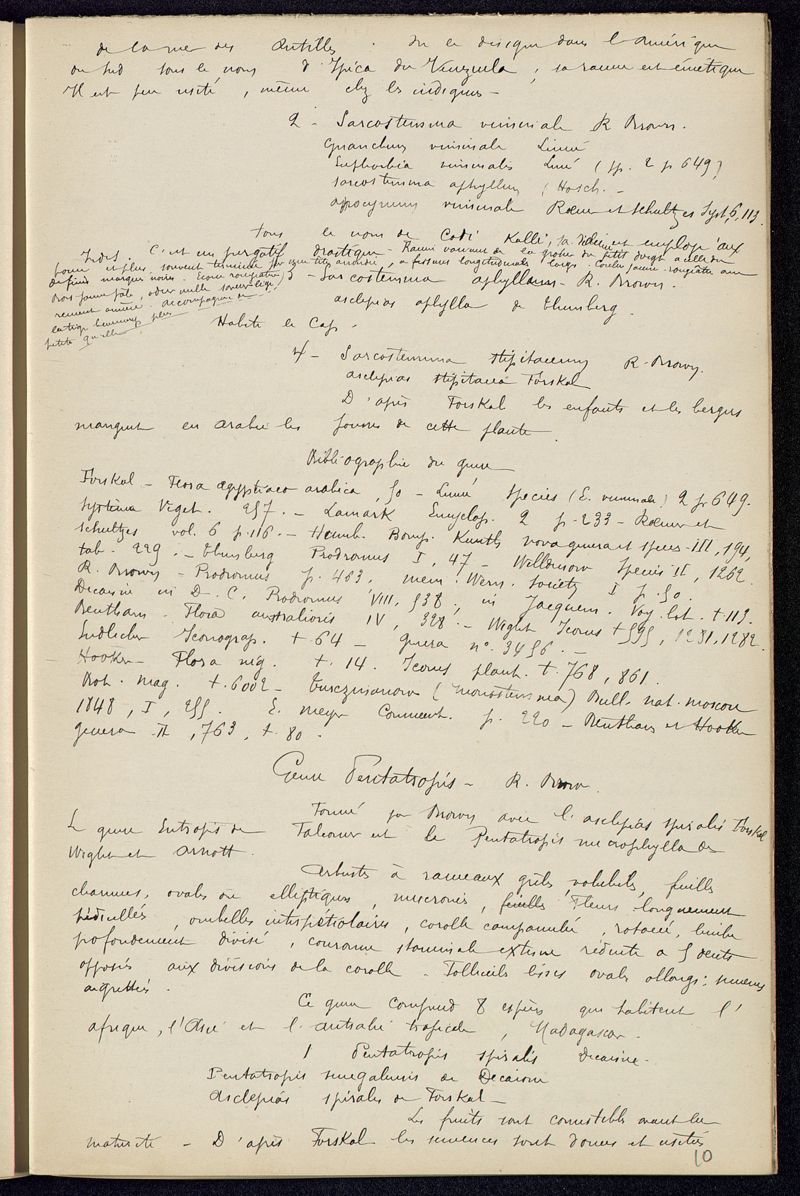 de la mer des Antilles. On le désigne dans l'Amérique
du Sud sous le nom d'Ipeca du Venezuela; sa racine est émétique
Il est peu usité, même chez les indigènes -
2 - Sarcostemma viminale R Brown.
Cynanchum viminale Linné
Euphorbia viminalis Linné (sp. 2 p 649)
Sarcostemma aphyllum (Hosch. -
apocynum viminale Rœm et Schultz es Syst. 6, 113
Sous le nom de Codi Kalli, sa est employé aux
Indes. C'est un purgatif drastique -
3 - Sarcostemma aphyllum - R. Brown.
asclepias aphylla de Thunberg.
Habite le Cap.
4 - Sarcostemma stipitaceum R. Brown.
asclepias stipitacea Forskal
D'après Forskal les enfants et les bergers
mangent en arabie les de cette plante.
Bibliographie du genre
Forskal - Flora ægyptiaco arabica, 50 - Linné Species (E. viminale) 2 p 649.
Systema Veget. 257. - Lamark Encyclop. 2 p. 233 - Rœmer et
Schultzes vol. 6 p. 116 - Humb. Bonp. Kunth nova genera et species III, 194,
tab. 229. - Thunberg Prodromus I, 47 - Willdenow Species II, 1262.
R. Brown - Prodromus p. 463, mem. Wern. Society I p. 50.
Decaisne in D. C. Prodromus VIII, 538, in Jacquem. Voy. bot. t. 113.
Bentham - Flora australiensis IV, 328. - Wight Icones t 595, 1281, 1282.
Endlicher Iconograp. t 64 - genera n°. 3456. -
Hooker - Flora nig. t. 14. Icones plant. t. 768, 861.
Bot. mag. t. 6002 - Turczaninow (Monostemma) Bull. nat. moscou
1848, I, 255. E. Meyer Comment. p. 220 - Bentham et Hooker
genera II, 763, t. 80.
Genre Pentatropis - R. Brow.
Formé par Brown avec l'asclepias spiralis Forskal
L genre Entropis de Falconer et le Pentatropis microphylla de
Wight et Arnott.
Arbustes à rameaux grêles, volubiles, feuilles
charnues, ovales ou elliptiques, mucronés, Fleurs longuement
pédicellées, ombelles interpétiolaires, corolle campanulée, rotacée, limbe
profondement divisé, couronne staminale externe réduite a 5 dents
opposés aux divisions de la corolle. Follicules lisses ovales allongés; semences
aigrettées.
Ce genre comprend 8 espèces qui habitent l'
afrique, l'Asie et l'australie tropicale, Madagascar.
1 Pentatropis spiralis Decaisne.
Pentatropis senegalensis de Decaisne
Asclepias spiralis de Forskal -
Les fruits sont comestibles avant leur
maturité - D'après Forskal les semences sont douces et usitées
10